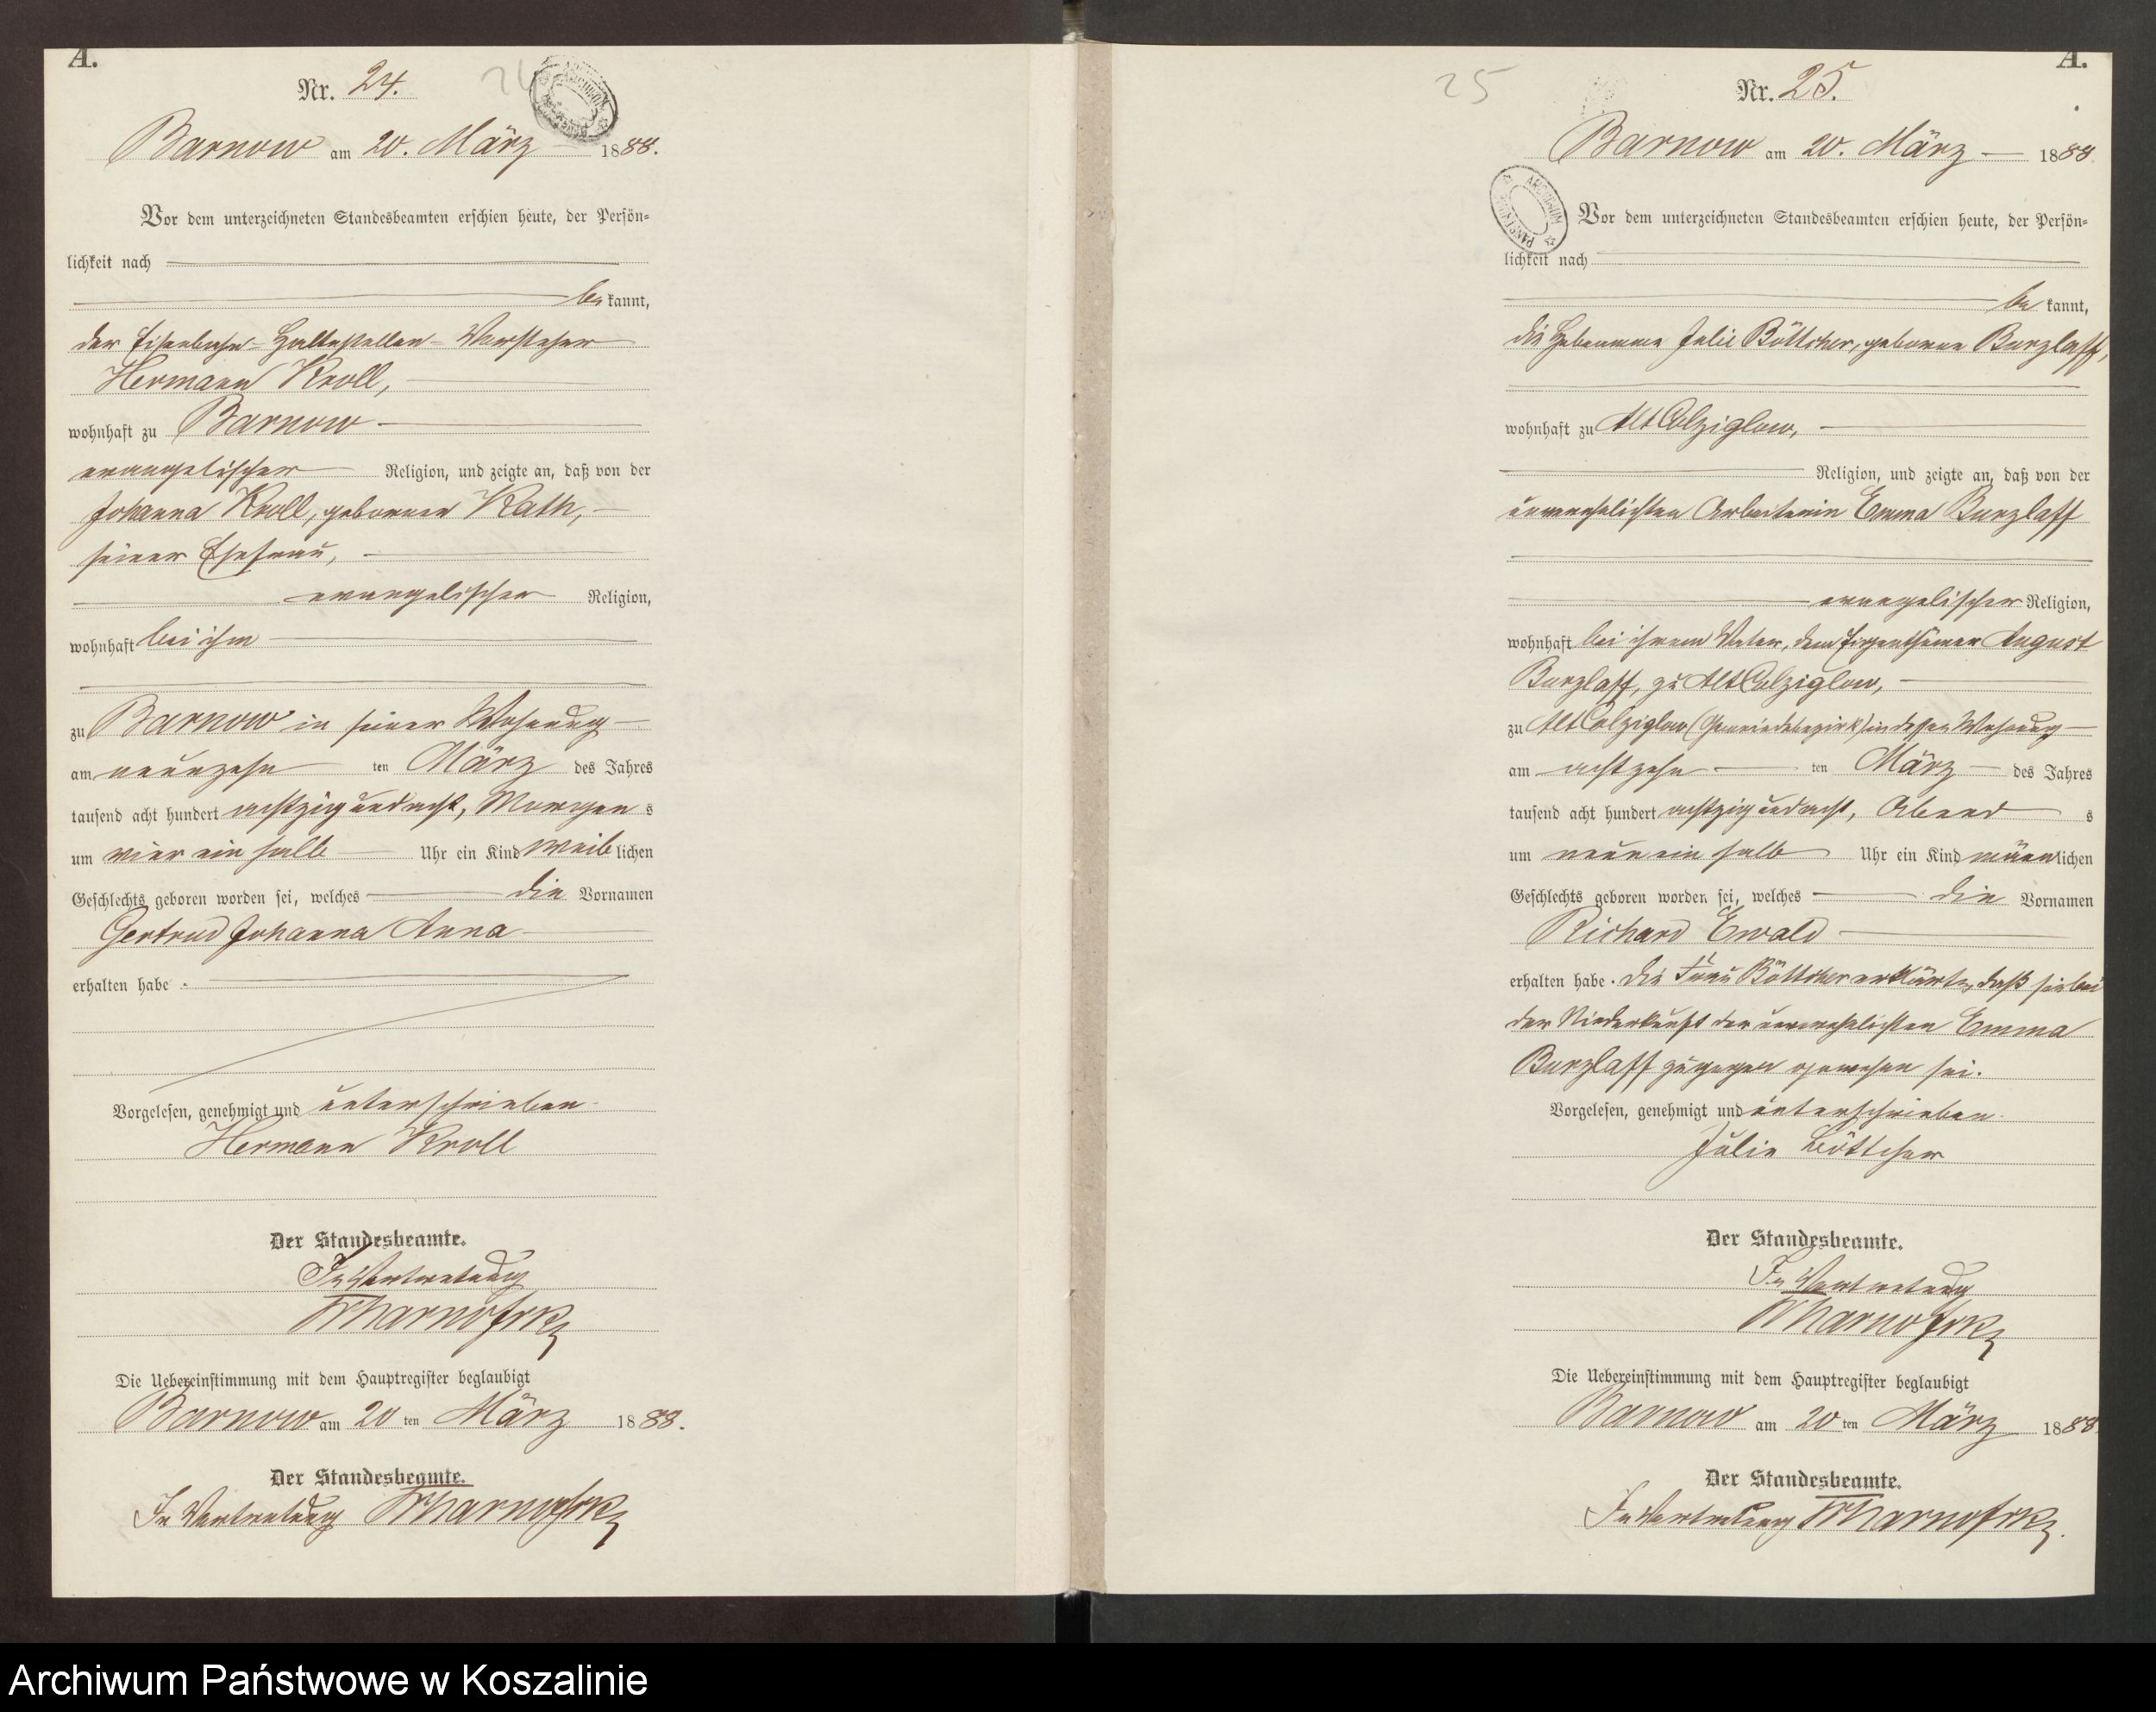 A.
Nr. 24.
Barnow am 20. März 1888.
Vor dem unterzeichneten Standesbeamten erschien heute, der Persön-
lichkeit nach
be kannt,
der Eisenbahn-Haltestellen-Vorsteher
Hermann Kroll,
wohnhaft zu Barnow
evangelischer Religion, und zeigte an, daß von der
Johanna Kroll, geborenen Rath,
seiner Ehefrau,
evangelischer Religion,
wohnhaft bei ihm
zu Barnow in seiner Wohnung
am neunzehn ten März des Jahres
tausend acht hundert achtzig und acht, Morgen s
um vier ein halb Uhr ein Kind weib lichen
Geschlechts geboren worden sei, welches die Vornamen
Gertrud Johanna Anna
erhalten habe.
Vorgelesen, genehmigt und unterschrieben
Hermann Kroll
Der Standesbeamte.
In Vertretung
Die Uebereinstimmung mit dem Hauptregister beglaubigt
Barnow am 20 ten März 1888.
Der Standesbeamte.
In Vertretung
A.
25
Nr. 25.
Barnow am 20. März 1888
ARCHIWUM
Vor dem unterzeichneten Standesbeamten erschien heute, der Persön-
lichkeit nach
be kannt,
die Hebamme Julie Böttcher, geborene Burzlaff,
wohnhaft zu Alt Colziglow,
Religion, und zeigte an, daß von der
unverehelichten Arbeiterin Emma Burzlaff
evangelischer Religion,
wohnhaft bei ihrem Vater, dem Eigenthümer August
Burzlaff, zu Alt Colziglow,
zu Alt Colziglow (Gemeindebezirk) in dessen Wohnung
am achtzehn ten März des Jahres
tausend acht hundert achtzig und acht, Abend s
um neun ein halb Uhr ein Kind männ lichen
Geschlechts geboren worden sei, welches die Vornamen
Richard Ewald
erhalten habe. Die Frau Böttcher erklärte, daß sie bei
der Niederkunft der unverehelichten Emma
Burzlaff zugegen gewesen sei.
Vorgelesen, genehmigt und unterschrieben.
Julie Böttcher
Der Standesbeamte.
In Vertretung
Die Uebereinstimmung mit dem Hauptregister beglaubigt
Barnow am 20 ten März 1888
Der Standesbeamte.
In Vertretung
Archiwum Państwowe w Koszalinie